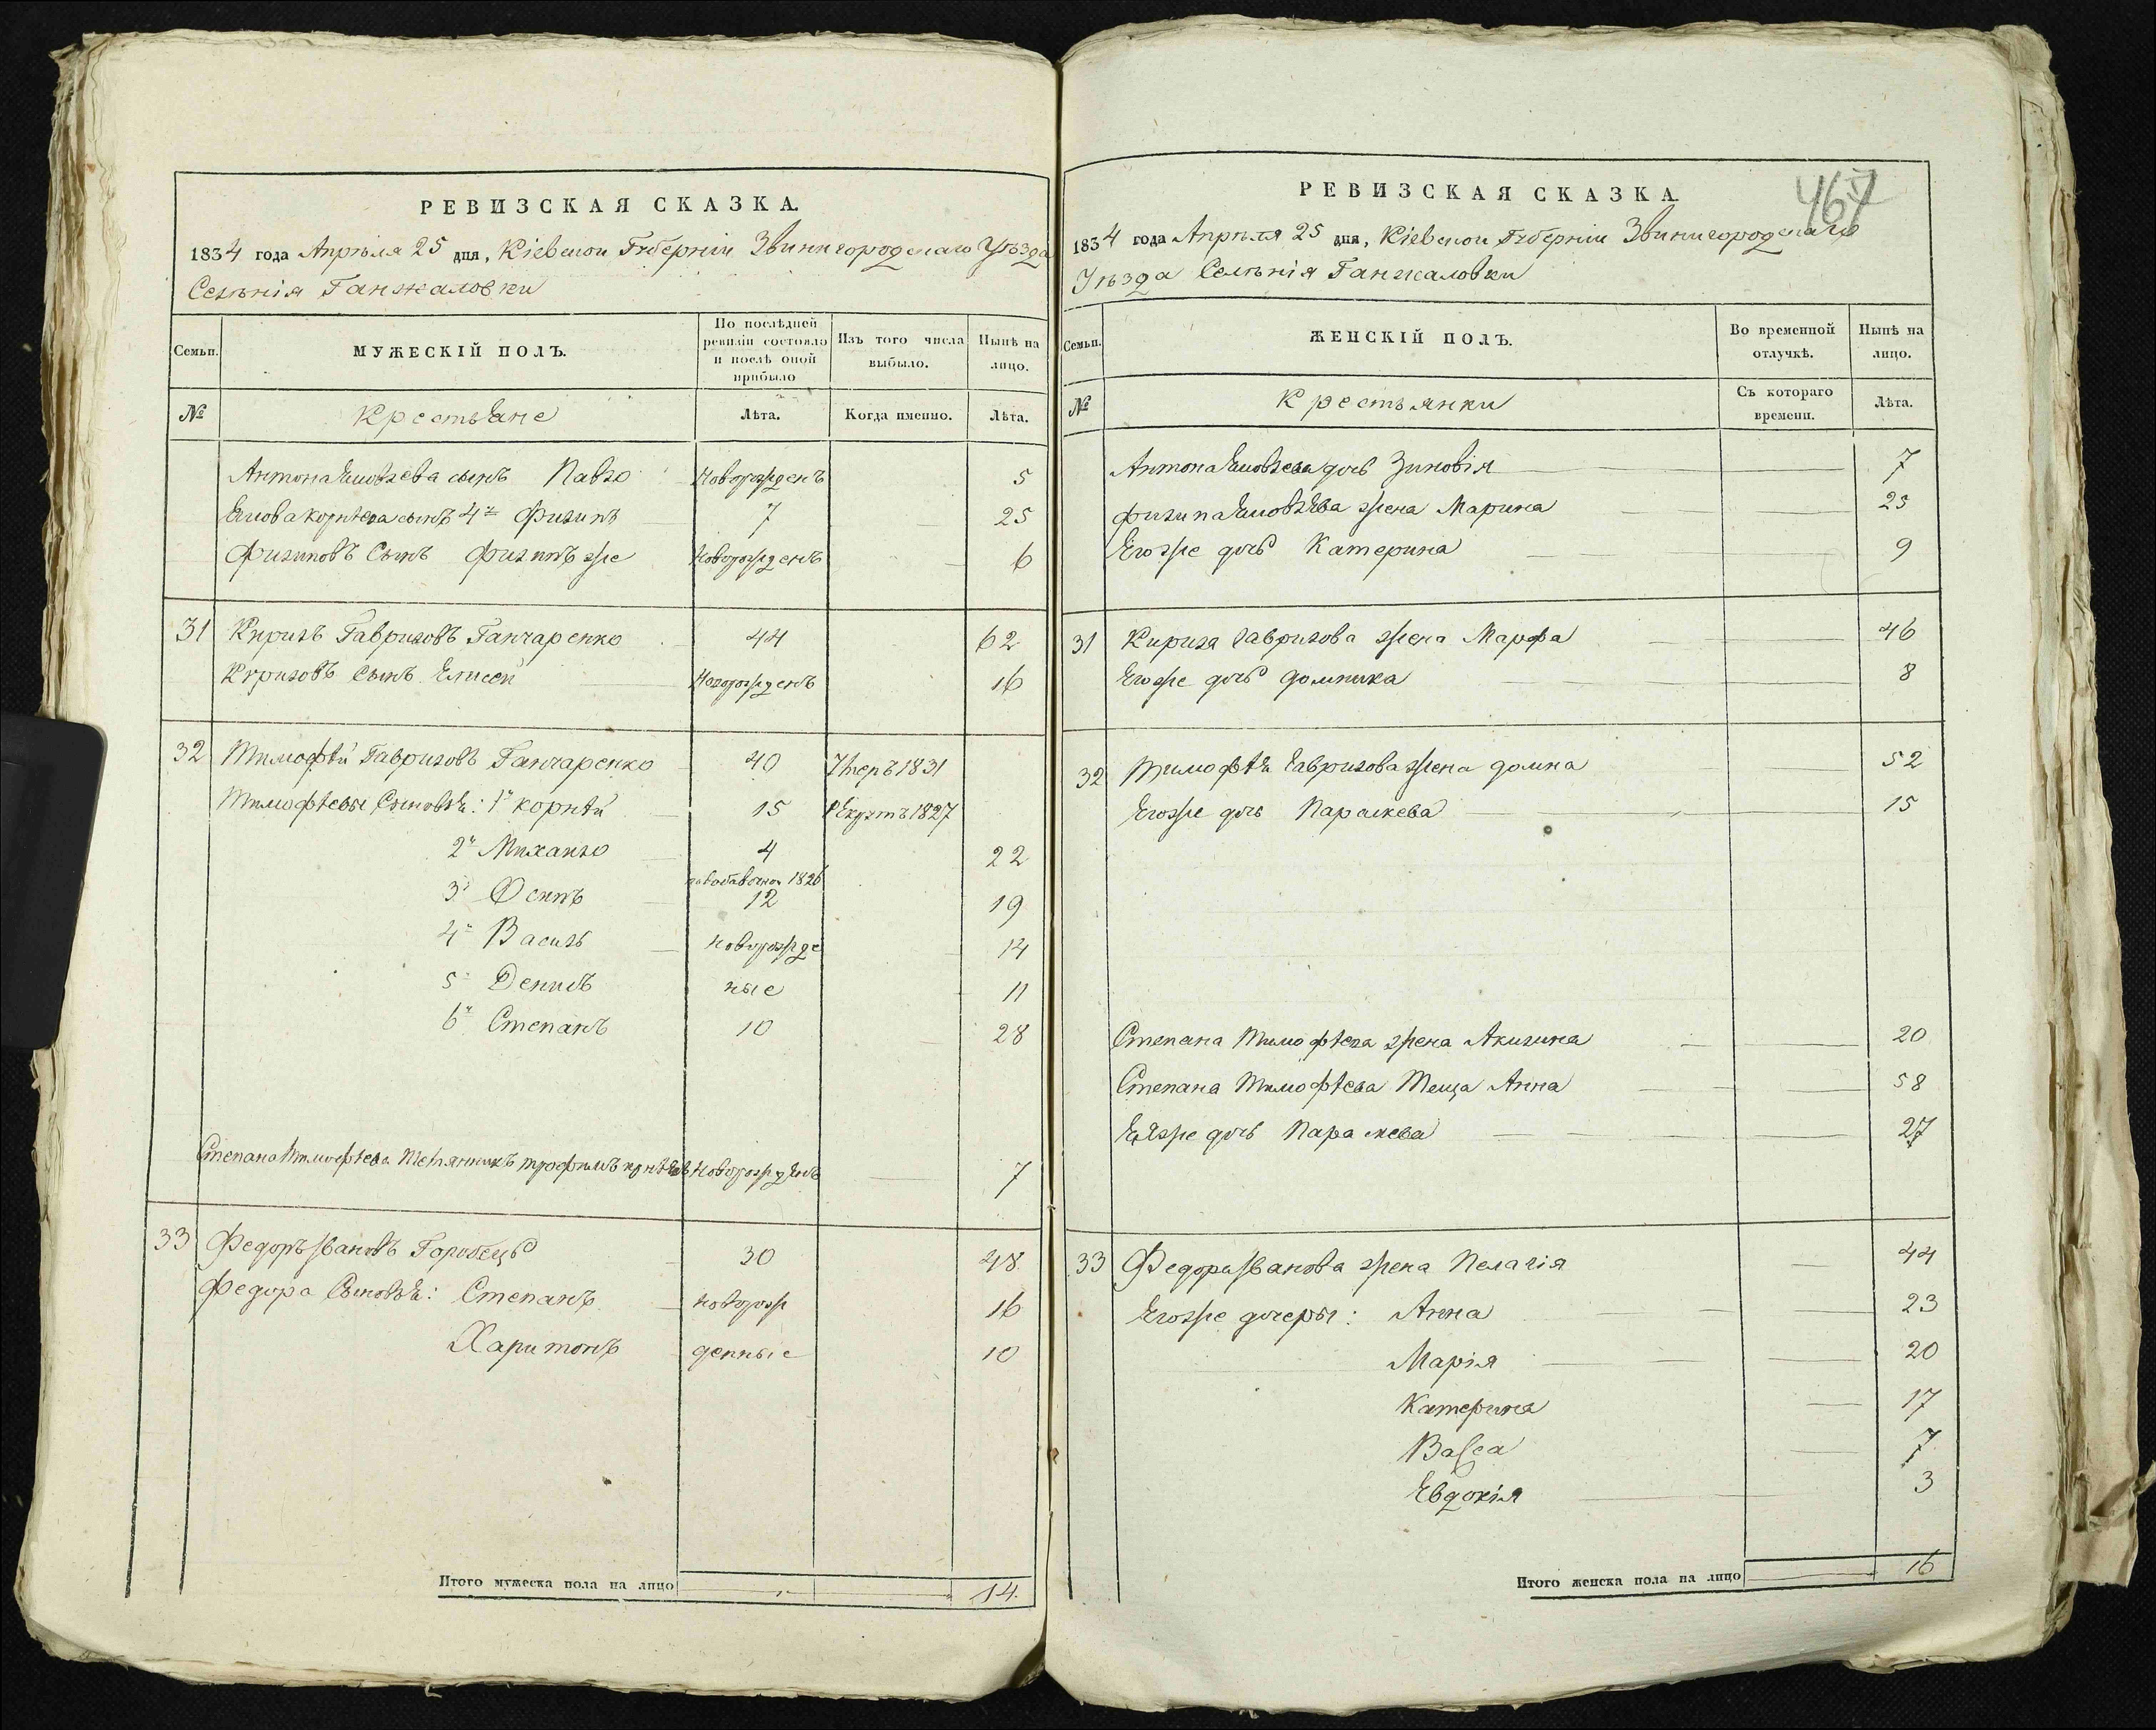 РЕВИЗСКАЯ СКАЗКА.
1834 года Апрѣля 25 дня, Кіевской Губерніи Звинигородскаго Уѣзда
Селѣнія Ганжаловки
Семьи.
МУЖЕСКІЙ ПОЛЪ.
По послѣдней ревизіи состояло и послѣ оной прибыло
Изъ того числа выбыло.
Нынѣ на лицо.
№
Крестьяне
Лѣта.
Когда именно.
Лѣта.
Антона Яковлева сынъ Павло Новорожденъ 5
Якова Корнѣева сынъ 4й Филипъ 7 25
Филиповъ Сынъ Филипъ же Новорожденъ 6
31 Кирилъ Гавриловъ Ганчаренко 44 62
Кириловъ Сынъ Елисей Новорожденъ 16
32 Тимофѣй Гавриловъ Ганчаренко 40 Умеръ 1831
Тимофѣевы Сыновья: 1й Корнѣй 15 Рекрутъ 1827
2й Михайло 4 22
1826
3й Осипъ 12 19
4й Василь новорожде 14
5й Денисъ ные 11
6й Степанъ 10 28
Степана Тимофѣева Трофимъ Новорожденъ 7
33 Федоръ Ивановъ Горобецъ 30 48
Федора Сыновья: Степанъ новорож 16
Харитонъ денные 10
Итого мужеска пола на лицо 14.
467
РЕВИЗСКАЯ СКАЗКА
1834 года Апрѣля 25 дня, Кіевской Губерніи Звинигородскаго
Уѣзда Селѣнія Ганжаловки
Семьи.
ЖЕНСКІЙ ПОЛЪ.
Во временной отлучкѣ.
Нынѣ на лицо.
№
Крестьянки
Съ котораго времени.
Лѣта.
Антона Яковлева дочь Зиновія 7
Филипа Яковлева жена Марина 25
Егоже дочь Катерина 9
31 Кирила Гаврилова жена Марфа 46
Егоже дочь Домника 8
32 Тимофѣя Гаврилова жена Домна 52
Егоже дочь Параскева 15
Степана Тимофѣева жена Акилина 20
Степана Тимофѣева Теща Анна 58
Еяже дочь Параскева 27
33 Федора Иванова жена Пелагія 44
Егоже дочеры: Анна 23
Марія 20
Катерина 17
Васса 7
Евдокія 3
Итого женска пола на лицо 16